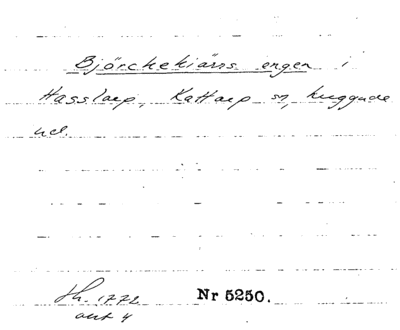 Björckekiärrs engen i
Hasslarp, Kattarp sn, Luggude
hd.
Lh. 1772
akt 4
Nr 5250.